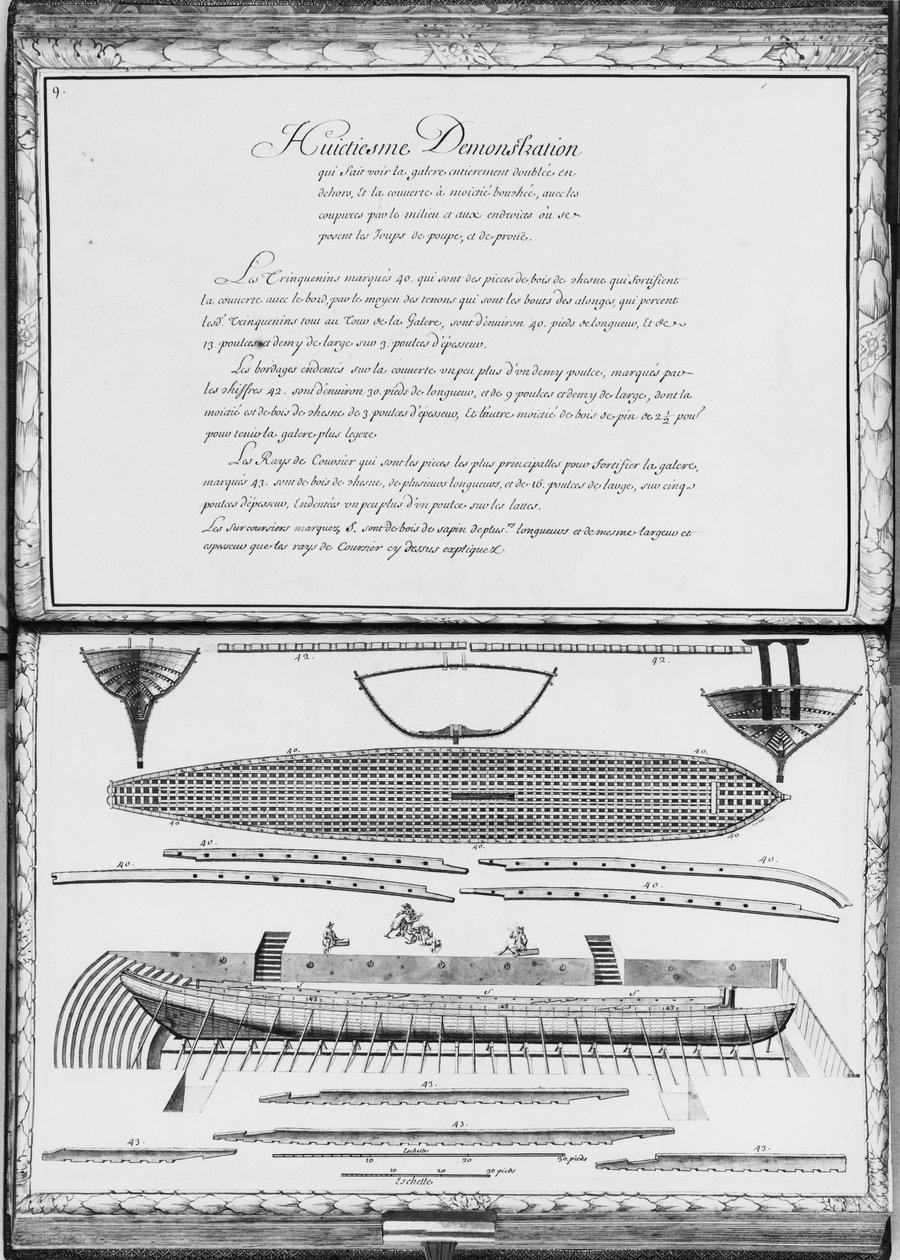 9.
Huictiesme Demonstration
qui fait voir la galere entierement doublée en
dehors, Et la couuerte à moictié bouchée, auec les
coupures par le milieu et aux endroicts où se
posent les Joups de poupe, et de proüe.
Les Trinquenins marqués 40. qui sont des pieces de bois de chesne qui fortifient
la couuerte auec le bord, par le moyen des tenons qui sont les bouts des alonges, qui percent
lesd. Trinquenins tout au Tour de la Galere, sont d'enuiron 40. pieds de longueur, Et de
13. poulces et demy de large sur 3. poulces d'épesseur.
Les bordages endentés sur la couuerte vn peu plus d'vn demy poulce, marqués par
les chiffres 42. sont d'enuiron 30. pieds de longueur, et de 9 poulces et demy de large, dont la
moictié est de bois de chesne de 3 poulces d'épesseur, Et l'autre moictié de bois de pin de 2 1/2 poul.
pour tenir la galere plus legere
Les Rays de Coursier qui sont les pieces les plus principalles pour fortifier la galere,
marqués 43. sont de bois de chesne, de plusieurs longueurs, et de 16. poulces de large, sur cinq
poulces d'épesseur, Endentées vn peu plus d'vn poulce sur les lattes.
Les Surcoursiers marquez S. sont de bois de sapin de plus.rs longueurs et de mesme largeur et
espesseur que les rays de Coursier cy dessus expliquez
42.
42.
40.
40.
40
40.
40
40.
40.
40.
40.
S
S
S
43
43
43
43.
43.
43.
43.
Eschelle
10
20
30. pieds
10
20
30 pieds
Eschelle